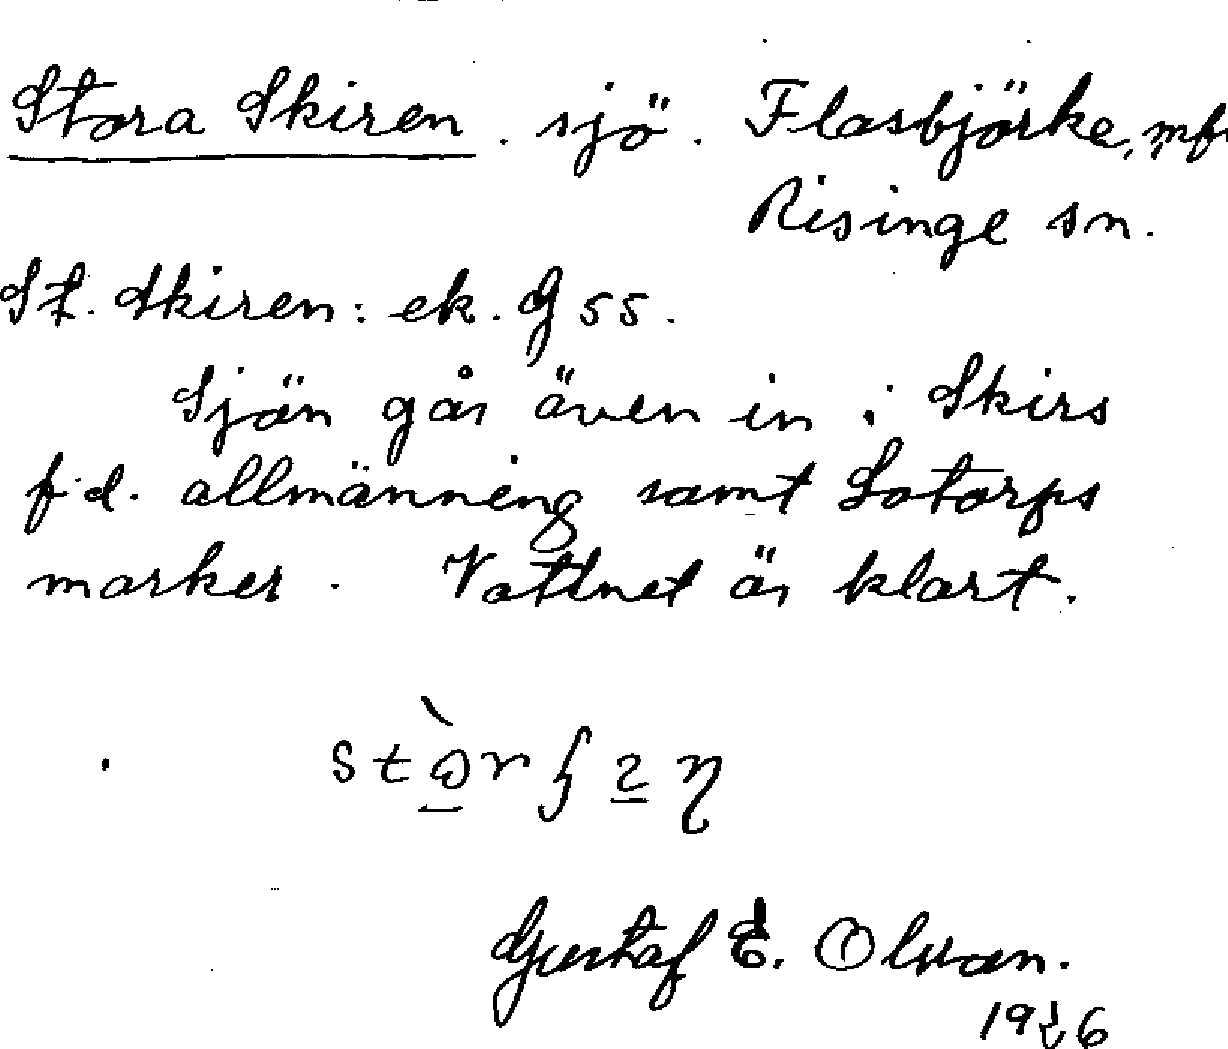 Stora Skiren. sjö. Flasbjörke, mfl
Risinge sn.
St. Skiren: ek. G 55.
Sjön går även in i Skirs
f.d. allmänning samt Sotorps
marker. Vattnet är klart.
Gustaf E. Olsson.
1926